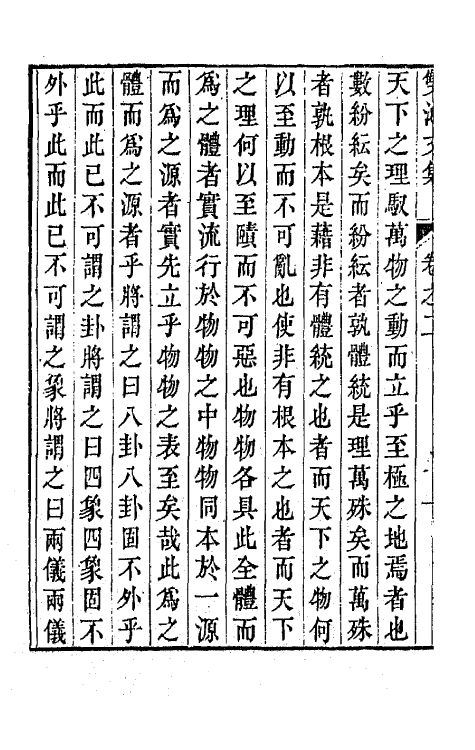 天下之理馭萬物之動而立乎至極之地焉者也
數紛紜矣而紛紜者孰體統是理萬殊矣而萬殊
者孰根本是藉非有體統之也者而天下之物何
以至動而不可亂也使非有根本之也者而天下
之理何以至賾而不可惡也物物各具此全體而
爲之體者實流行於物物之中物物同本於一源
而爲之源者實先立乎物物之表至矣哉此爲之
體而爲之源者乎將謂之曰八卦八卦固不外乎
此而此已不可謂之卦將謂之曰四象四象固不
外乎此而此已不可謂之象將謂之曰兩儀兩儀